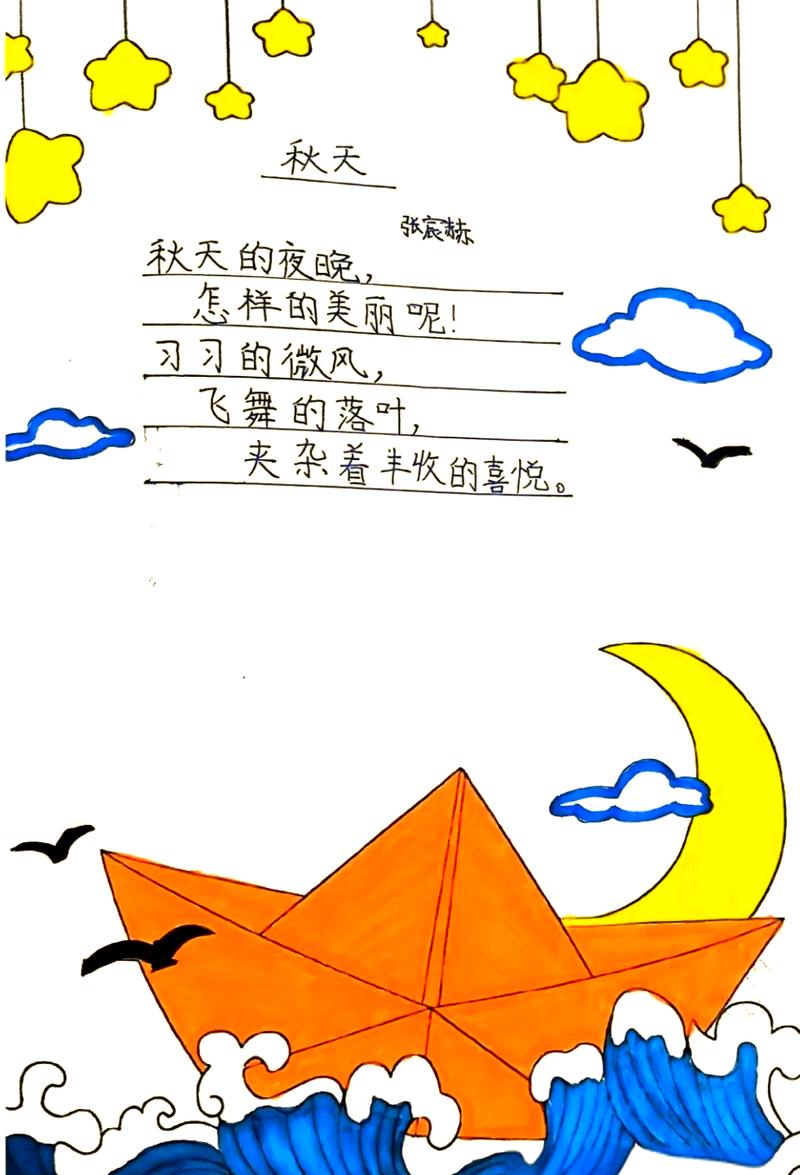 秋天
张宸赫
秋天的夜晚，
怎样的美丽呢！
习习的微风，
飞舞的落叶，
夹杂着丰收的喜悦。